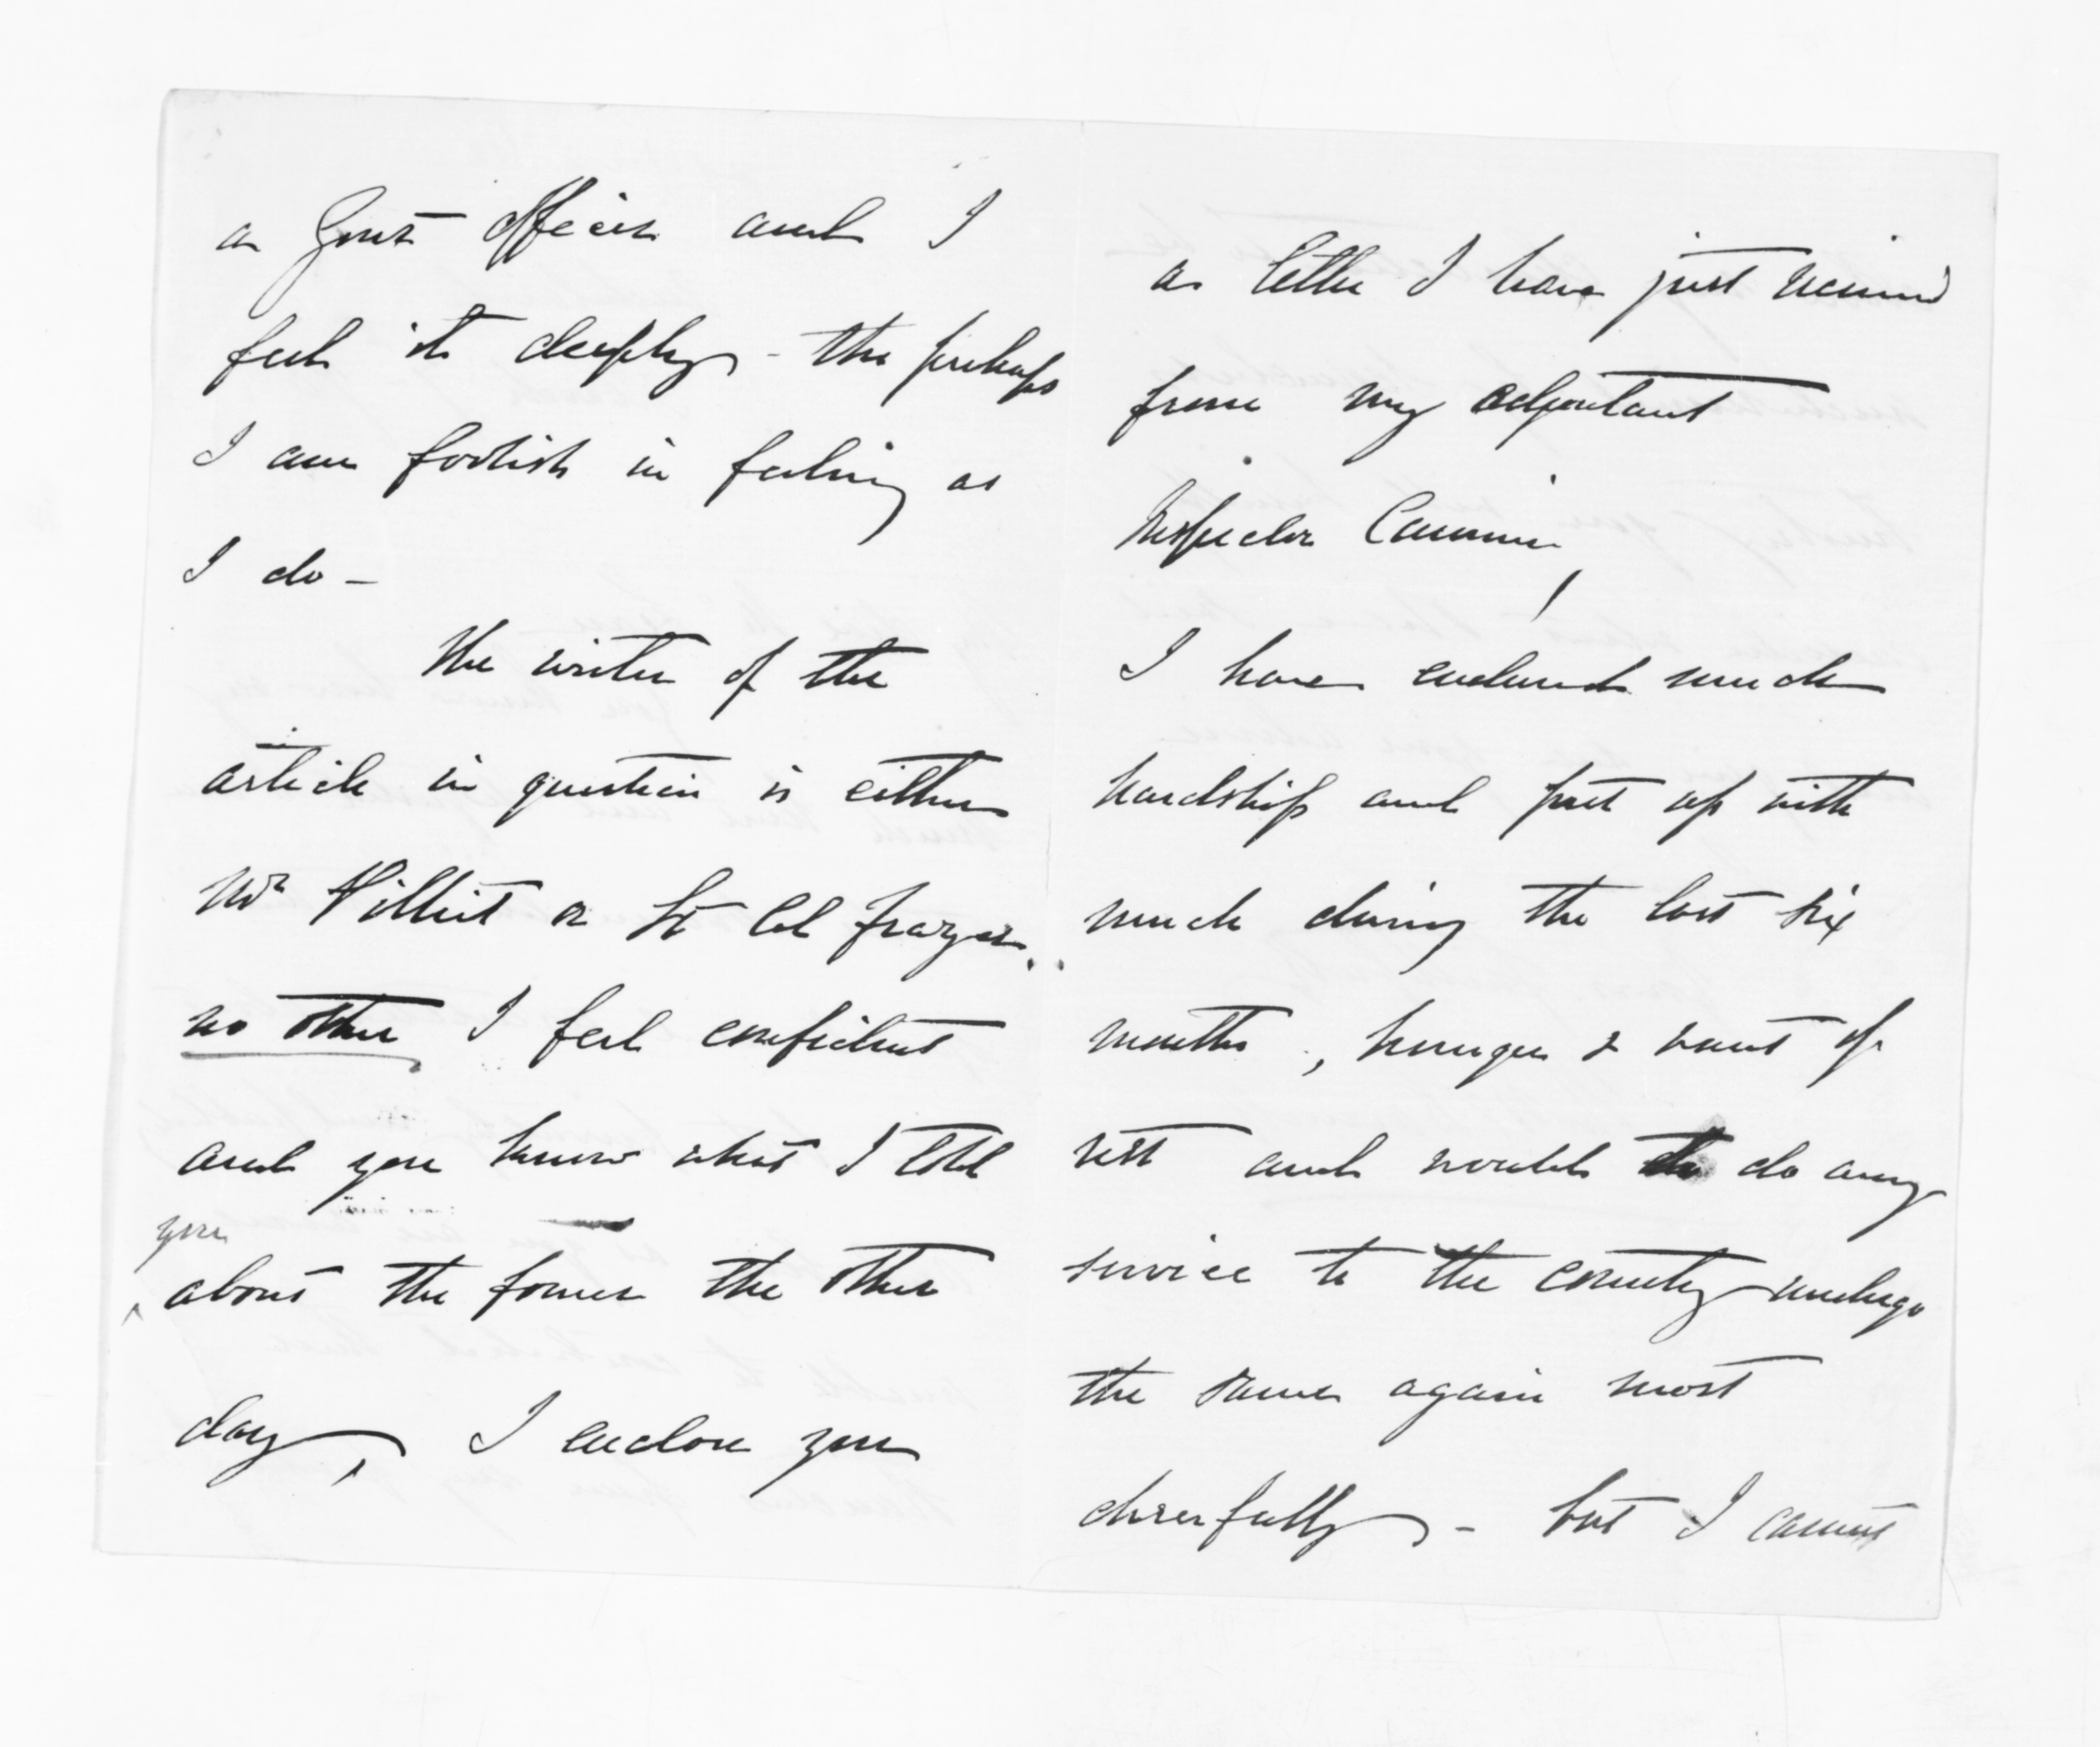 a Govt Officer and I
feel it deeply - tho perhaps
I am foolish in feeling as
I do -
The writer of the
article in question is either
Mr or Lt Col Frazer.
no other I feel confident
and you know what I told
you
about the former the other
day, I enclose you
a letter I have just received
from my adjutant
Inspector
I have endured much
hardship and put up with
much during the last six
months, hunger & want of
rest and would to do any
service to the country undergo
the same again most
cheerfully - but I cannot